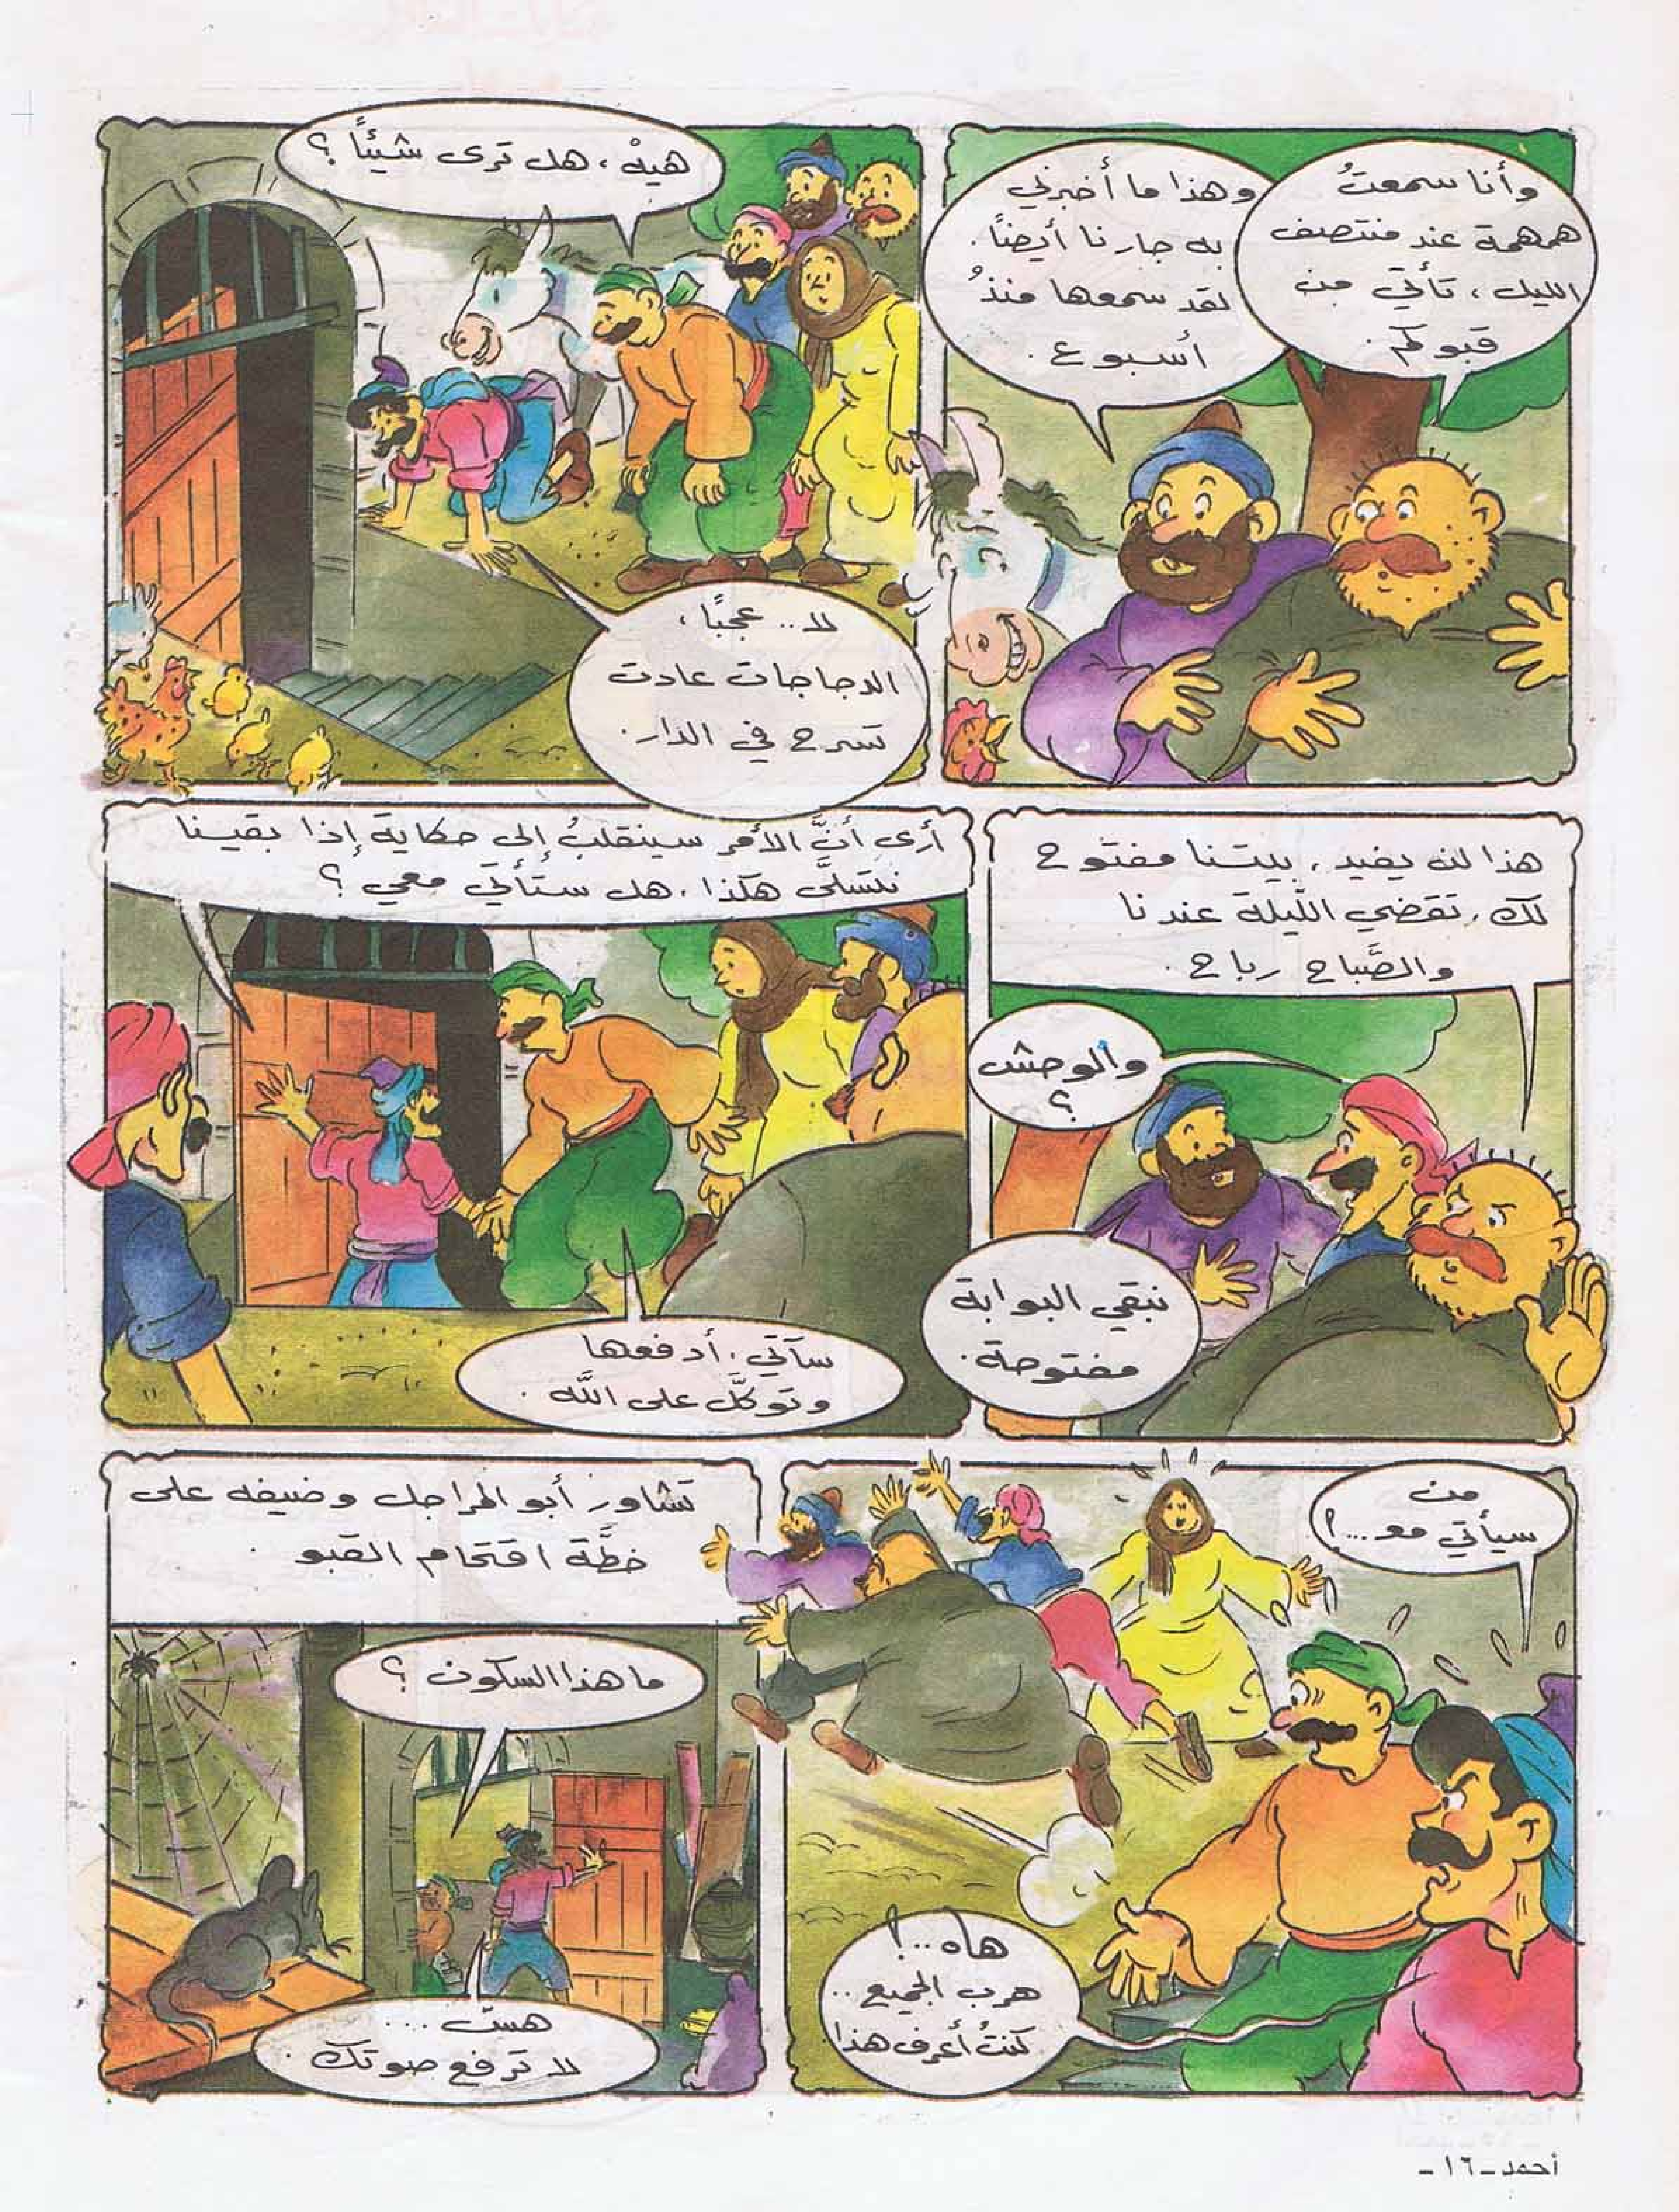 وأنا سمعتُ
همهمة عند منتصف
الليل، تأتي من
قبوكم.
وهذا ما أخبرني
به جارنا أيضاً.
لقد سمعها منذُ
أسبوع.
هيهْ، هل ترى شيئاً؟
لا.. عجبًا،
الدجاجات عادت
تسرح في الدار.
هذا لن يفيد، بيتنا مفتوح
لك، تقضي اللّيلة عندنا
والصَّباح رباح.
والوحش
؟
نبقي البوابة
مفتوحة.
أرى أنَّ الأمر سينقلبُ إلى حكاية إذا بقينا
نتسلَّى هكذا، هل ستأتي معي؟
سآتي، أدفعها
وتوكَّل على اللَّه.
من
سيأتي مو...؟
هاه..!
هرب الجميع..
كنتُ أعرف هذا.
تشاور أبو المراجل وضيفه على
خطَّة اقتحام القبو.
ما هذا السكون؟
هسّ...
لا ترفع صوتك.
أحمد - ١٦ -